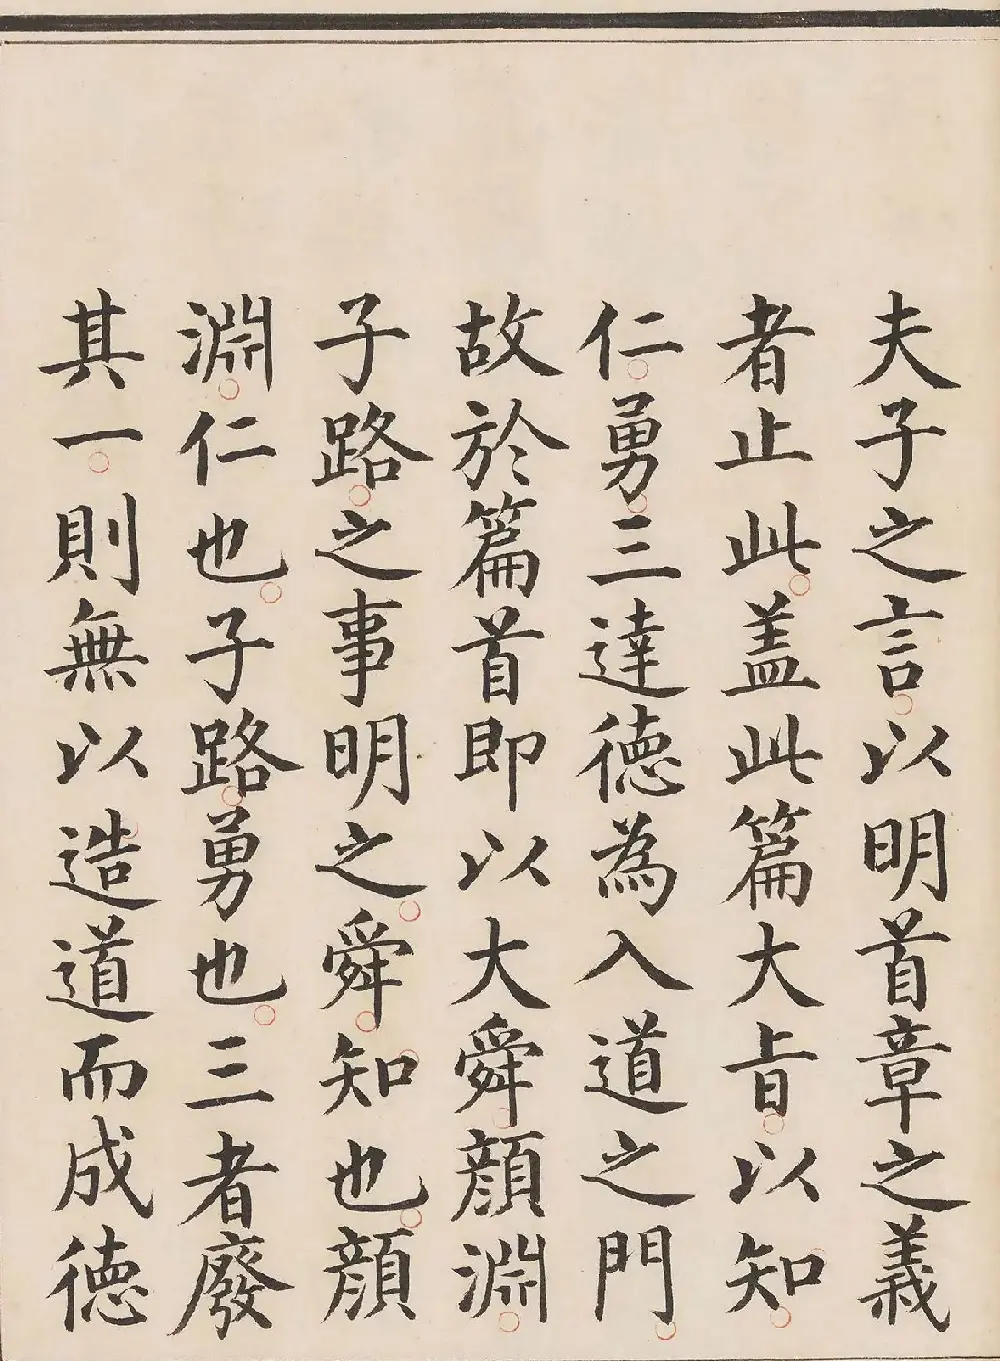 夫子之言以明首章之義
者止此盖此篇大旨以知
仁勇三達德為入道之門
故於篇首即以大舜顔淵
子路之事明之舜知也顔
淵仁也子路勇也三者廢
其一則無以造道而成德